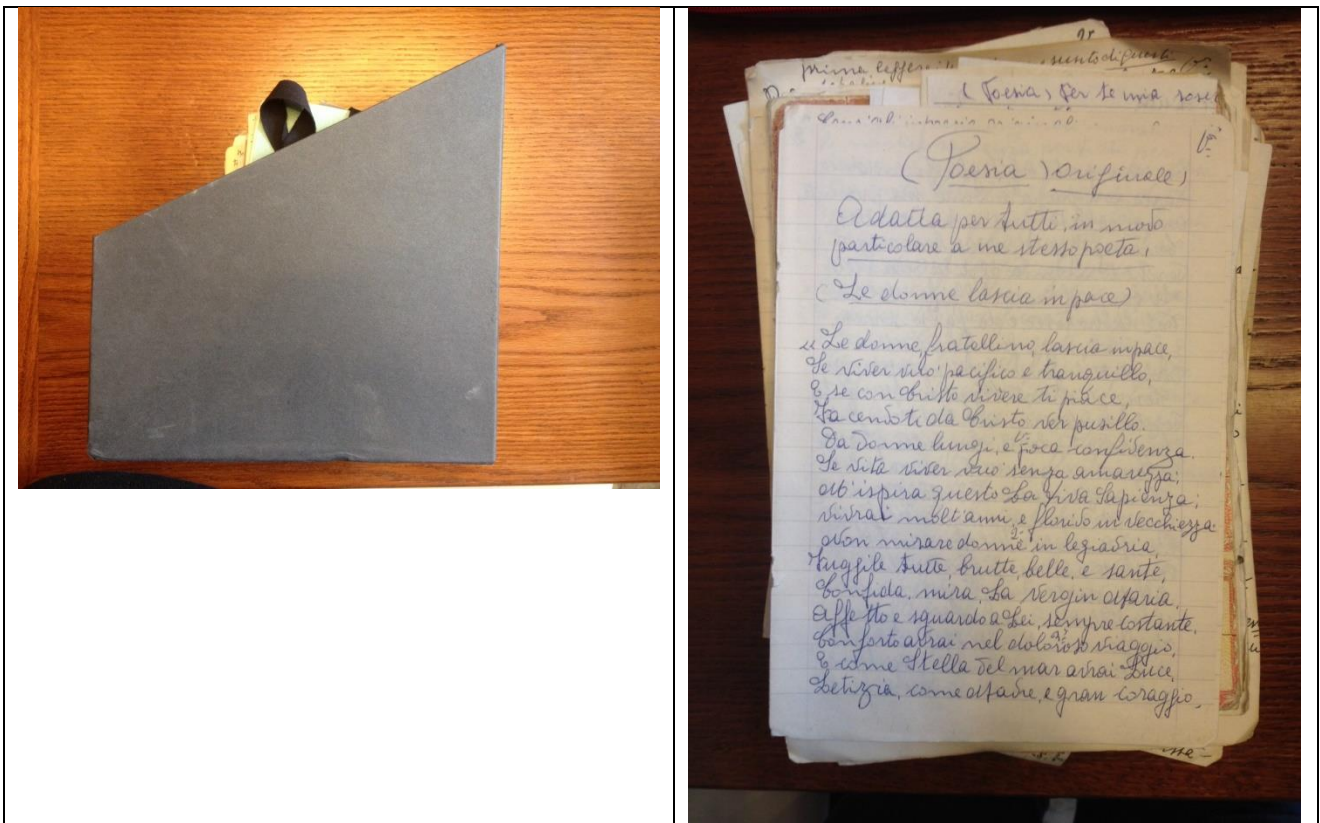 prima leggere
(Poesia) Per te mia
(Poesia) originale)
Adatta per tutti, in modo
particolare a me stesso poeta,
(Le donne lascia in pace)
"Le donne, fratellino, lascia in pace,
Se viver vuo' pacifico e tranquillo,
E se con Cristo vivere ti piace,
Facendoti da Cristo ver pusillo.
Da donne lungi, e poca confidenza.
Se vita viver vuo' senza amarezza;
M'ispira questo La Viva Sapienza;
vivrai molt'anni, e florido in vecchiezza.
2º
Non mirare donne in legiadria,
Fuggile tutte, brutte, belle, e sante,
Confida, mira, La Vergin Maria,
Affetto e sguardo a Lei, sempre costante.
Conforto avrai nel doloroso viaggio,
E come Stella del mar avrai Luce,
Letizia, come Madre, e gran coraggio,